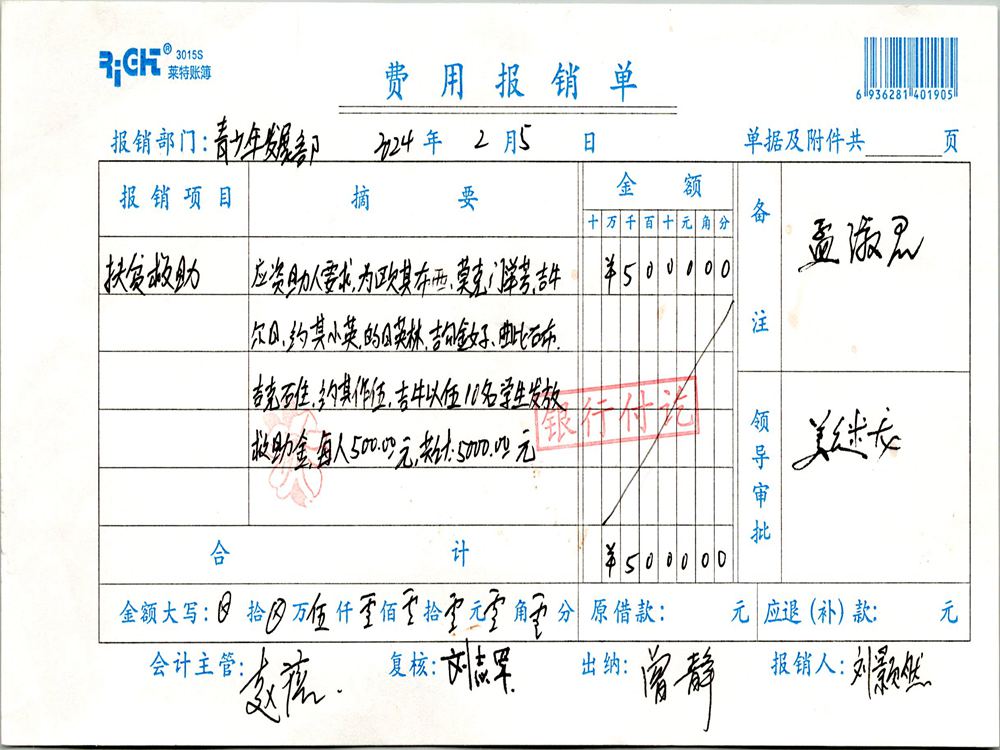 RiGHT® 3015S
莱特账簿
费用报销单
6 936281 401905
报销部门:青少年发展部 2024年2月5日 单据及附件共 页
报销项目 摘要 金额 备注
十万千百十元角分
扶贫救助 应资助人要求,为欧其布西、莫克门洋芳、吉牛 ¥500000
尔日、约其小英、的日英林、吉勾金好子、曲比石布、
吉克石住、约其作伍、吉牛以伍10名学生发放
救助金,每人500.00元,共计:5000.00元
银行付讫
孟淑君
领导审批
合计 ¥500000
金额大写:⊗拾⊗万伍仟零佰零拾零元零角零分 原借款: 元 应退(补)款: 元
会计主管: 复核:刘志军 出纳:曾静 报销人:刘颢然